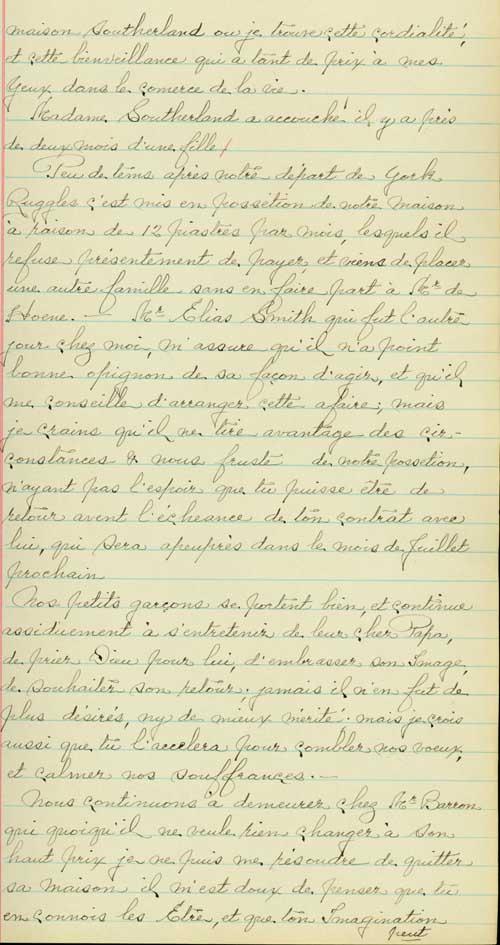 maison Southerland ou je trouve cette cordialité,
et cette bienveillance qui a tant de prix à mes
yeux dans le comerce de la vie.
Madame Southerland a accouché il y a près
de deux mois d'une fille.
Peu de tems après notre départ de York
Ruggles c'est mis en possetion de notre maison
à raison de 12 piastres par mois, lesquels il
refuse présentement de payer, et viens de placer
une autre famille sans en faire part à Mr de
Hoene. — Mr Elias Smith qui fut l'autre
jour chez moi, m'assure qu'il n'a point
bonne opignon de sa façon d'agir, et qu'il
me conseille d'arranger cette afaire; mais
je crains qu'il ne tire avantage des cir-
constances & nous fruste de notre possetion,
n'ayant pas l'espoir que tu puisse être de
retour avent l'écheance de ton contrat avec
lui, qui sera apeuprès dans le mois de Juillet
prochain
Nos petits garçons se portent bien, et continue
assiduement à s'entretenir de leur cher Papa,
de prier Dieu pour lui, d'embrasser son Image,
de souhaiter son retour; jamais il n'en fut de
plus désirés, ny de mieux mérité; mais je crois
aussi que tu l'accelera pour combler nos voeux,
et calmer nos souffrances. —
Nous continuons à demeurer chez Mr Barron
qui quoiqu'il ne veule rien changer à son
haut prix je ne puis me résoudre de quitter
sa maison il m'est doux de penser que tu
en connois les Etre, et que ton Imagination
peut